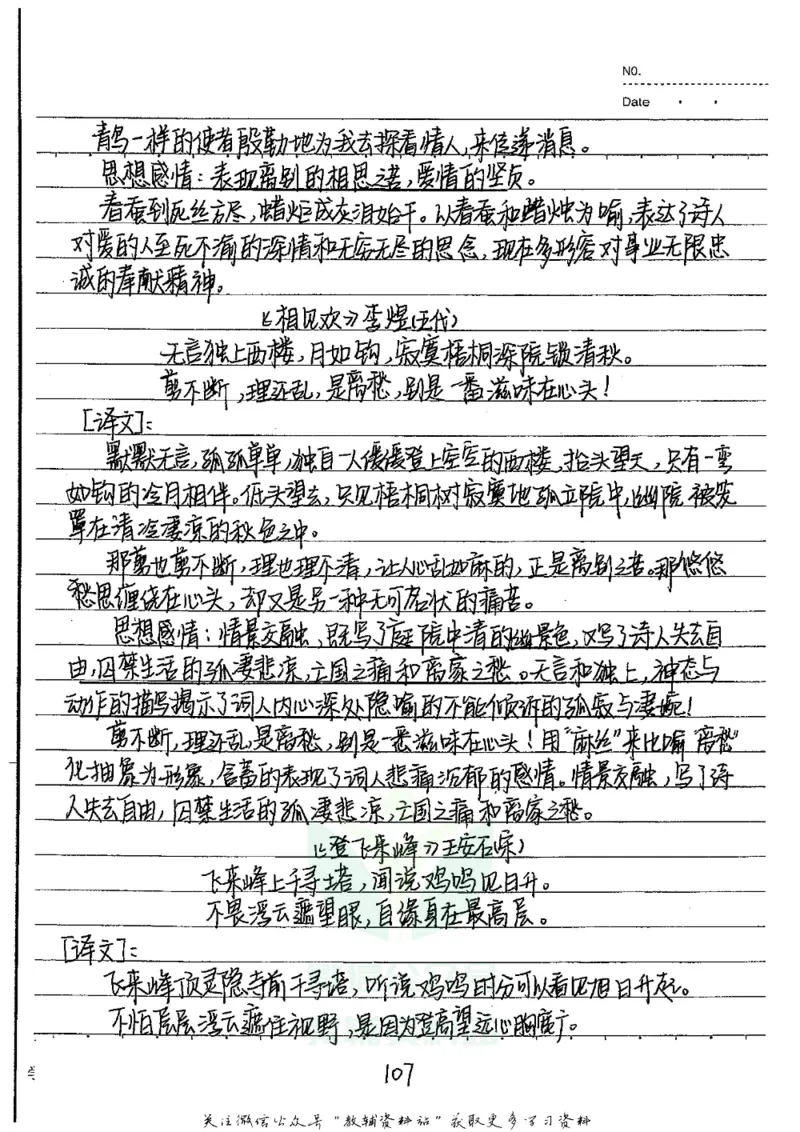 NO.
Date
青鸟一样的使者殷勤地为我去探看情人,来传递消息。
思想感情:表现离别的相思之苦,爱情的坚贞。
春蚕到死丝方尽,蜡炬成灰泪始干。以春蚕和蜡烛为喻,表达了诗人
对爱的人至死不渝的深情和无穷无尽的思念,现在多形容对事业无限忠
诚的奉献精神。
《相见欢》李煜(五代)
无言独上西楼,月如钩,寂寞梧桐深院锁清秋。
剪不断,理还乱,是离愁,别是一番滋味在心头!
[译文]:
默默无言,孤孤单单,独自一人缓缓登上空空的西楼,抬头望天,只有一弯
如钩的冷月相伴。低头望去,只见梧桐树寂寞地孤立院中,幽院被笼
罩在清冷凄凉的秋色之中。
那剪也剪不断,理也理不清,让人心乱如麻的,正是离别之苦。那悠悠
愁思缠绕在心头,却又是另一种无可名状的痛苦。
思想感情:情景交融,既写了庭院中清的幽景色,又写了诗人失去自
由,囚禁生活的孤凄悲凉,亡国之痛和离家之愁。无言和独上,神态与
动作的描写揭示了词人内心深处隐喻的不能倾诉的孤寂与凄婉!
剪不断,理还乱,是离愁,别是一番滋味在心头!用"麻丝"来比喻"离愁"
化抽象为形象,含蓄的表现了词人悲痛沉郁的感情。情景交融,写了诗
人失去自由,囚禁生活的孤凄悲凉,亡国之痛和离家之愁。
《登飞来峰》王安石(宋)
飞来峰上千寻塔,闻说鸡鸣见日升。
不畏浮云遮望眼,自缘身在最高层。
[译文]:
飞来峰顶灵隐寺前千寻塔,听说鸡鸣时分可以看见旭日升起。
不怕层层浮云遮住视野,是因为登高望远心胸宽广。
107
关注微信公众号"教辅资料站"获取更多学习资料